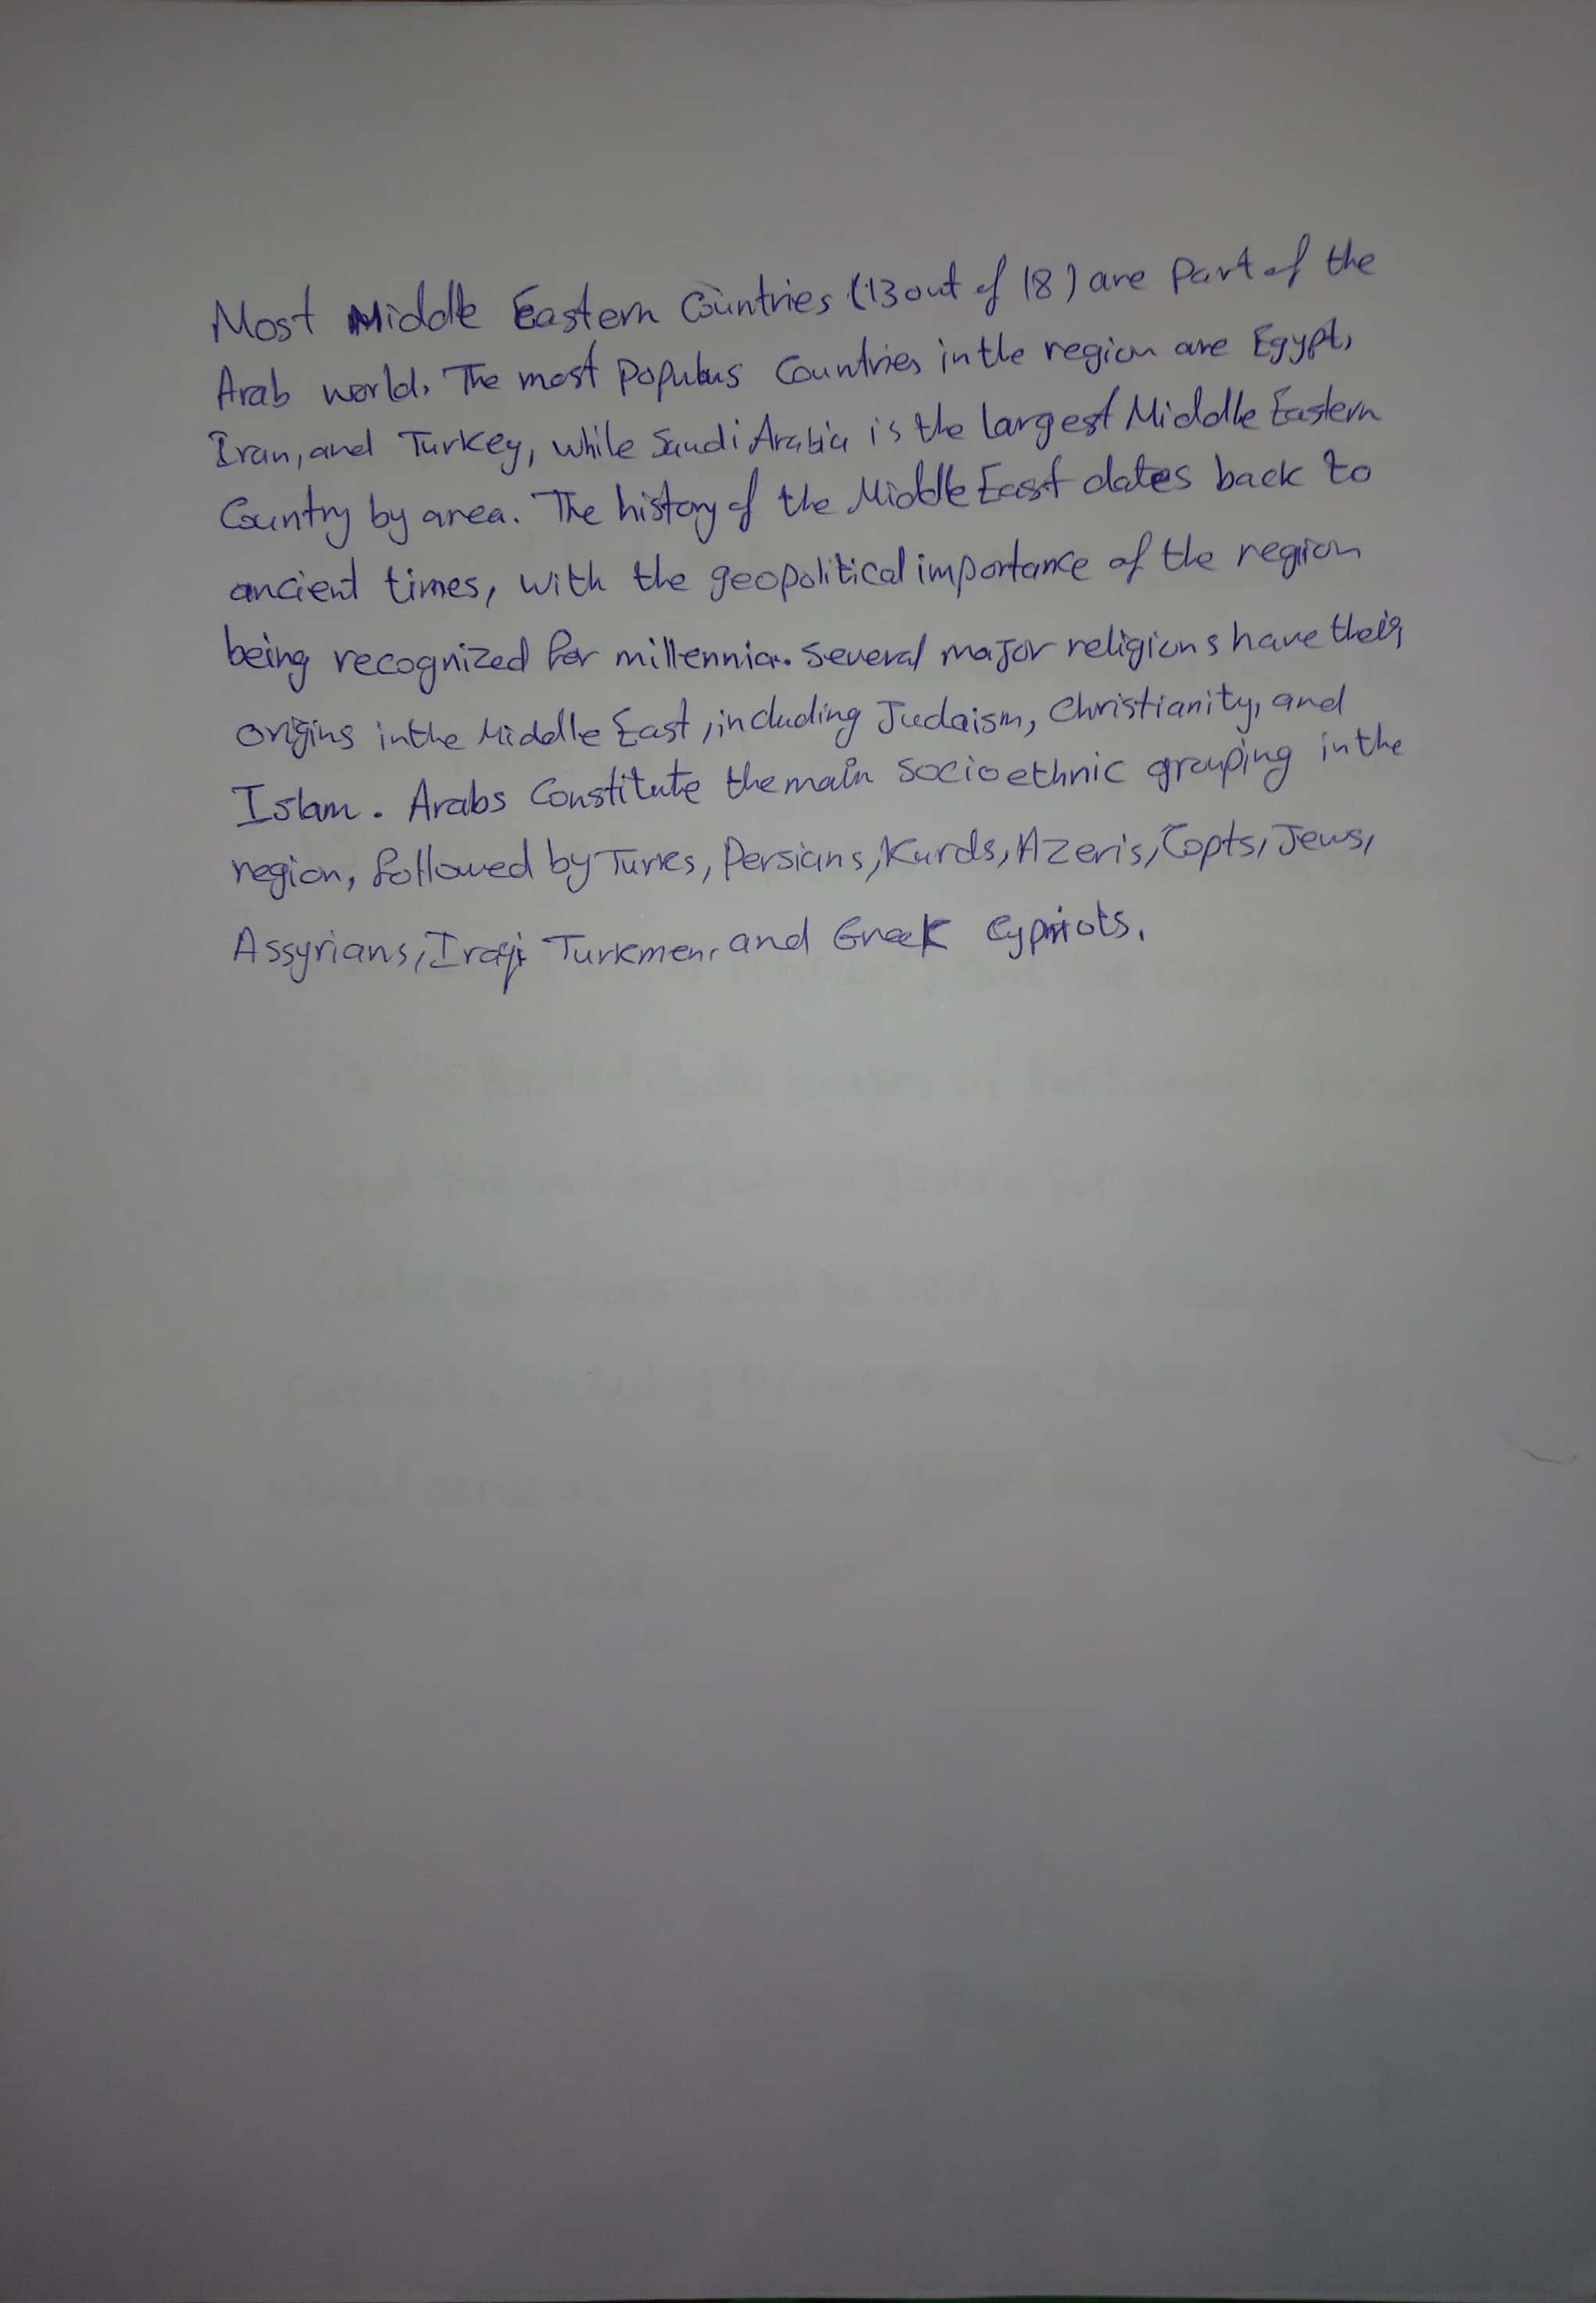 Most Middle Eastern Countries (13 out of 18) are part of the
Arab world. The most populous Countries in the region are Egypt,
Iran, and Turkey, while Saudi Arabia is the largest Middle Eastern
Country by area. The history of the Middle East dates back to
ancient times, with the geopolitical importance of the region
being recognized for millennia. Several major religions have their
origins in the Middle East, including Judaism, Christianity, and
Islam. Arabs Constitute the main socioethnic grouping in the
region, followed by Turks, Persians, Kurds, Azeris, Copts, Jews,
Assyrians, Iraqi Turkmen, and Greek Cypriots.